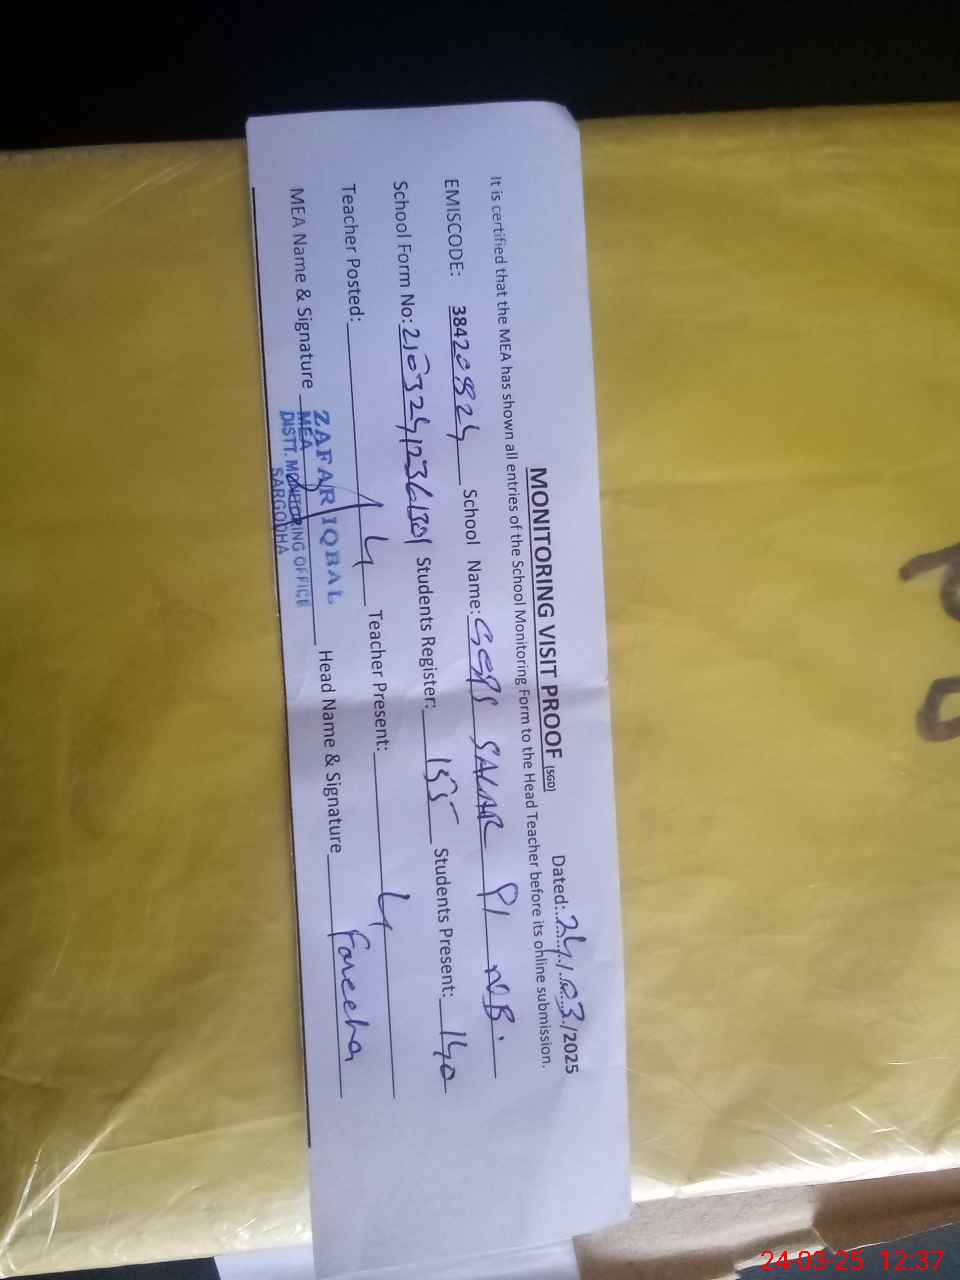 MONITORING VISIT PROOF (SGD) Dated: 24/03/2025
It is certified that the MEA has shown all entries of the School Monitoring Form to the Head Teacher before its online submission.
EMISCODE: 38420824 School Name: GGPS SALAR PI NB.
School Form No: Students Register: 155 Students Present: 140
Teacher Posted: 4 Teacher Present: 4
MEA Name & Signature Head Name & Signature Fareeha
ZAFAR IQBAL
MEA
DISTT. MONITORING OFFICE
SARGODHA
24-03-25 12:37